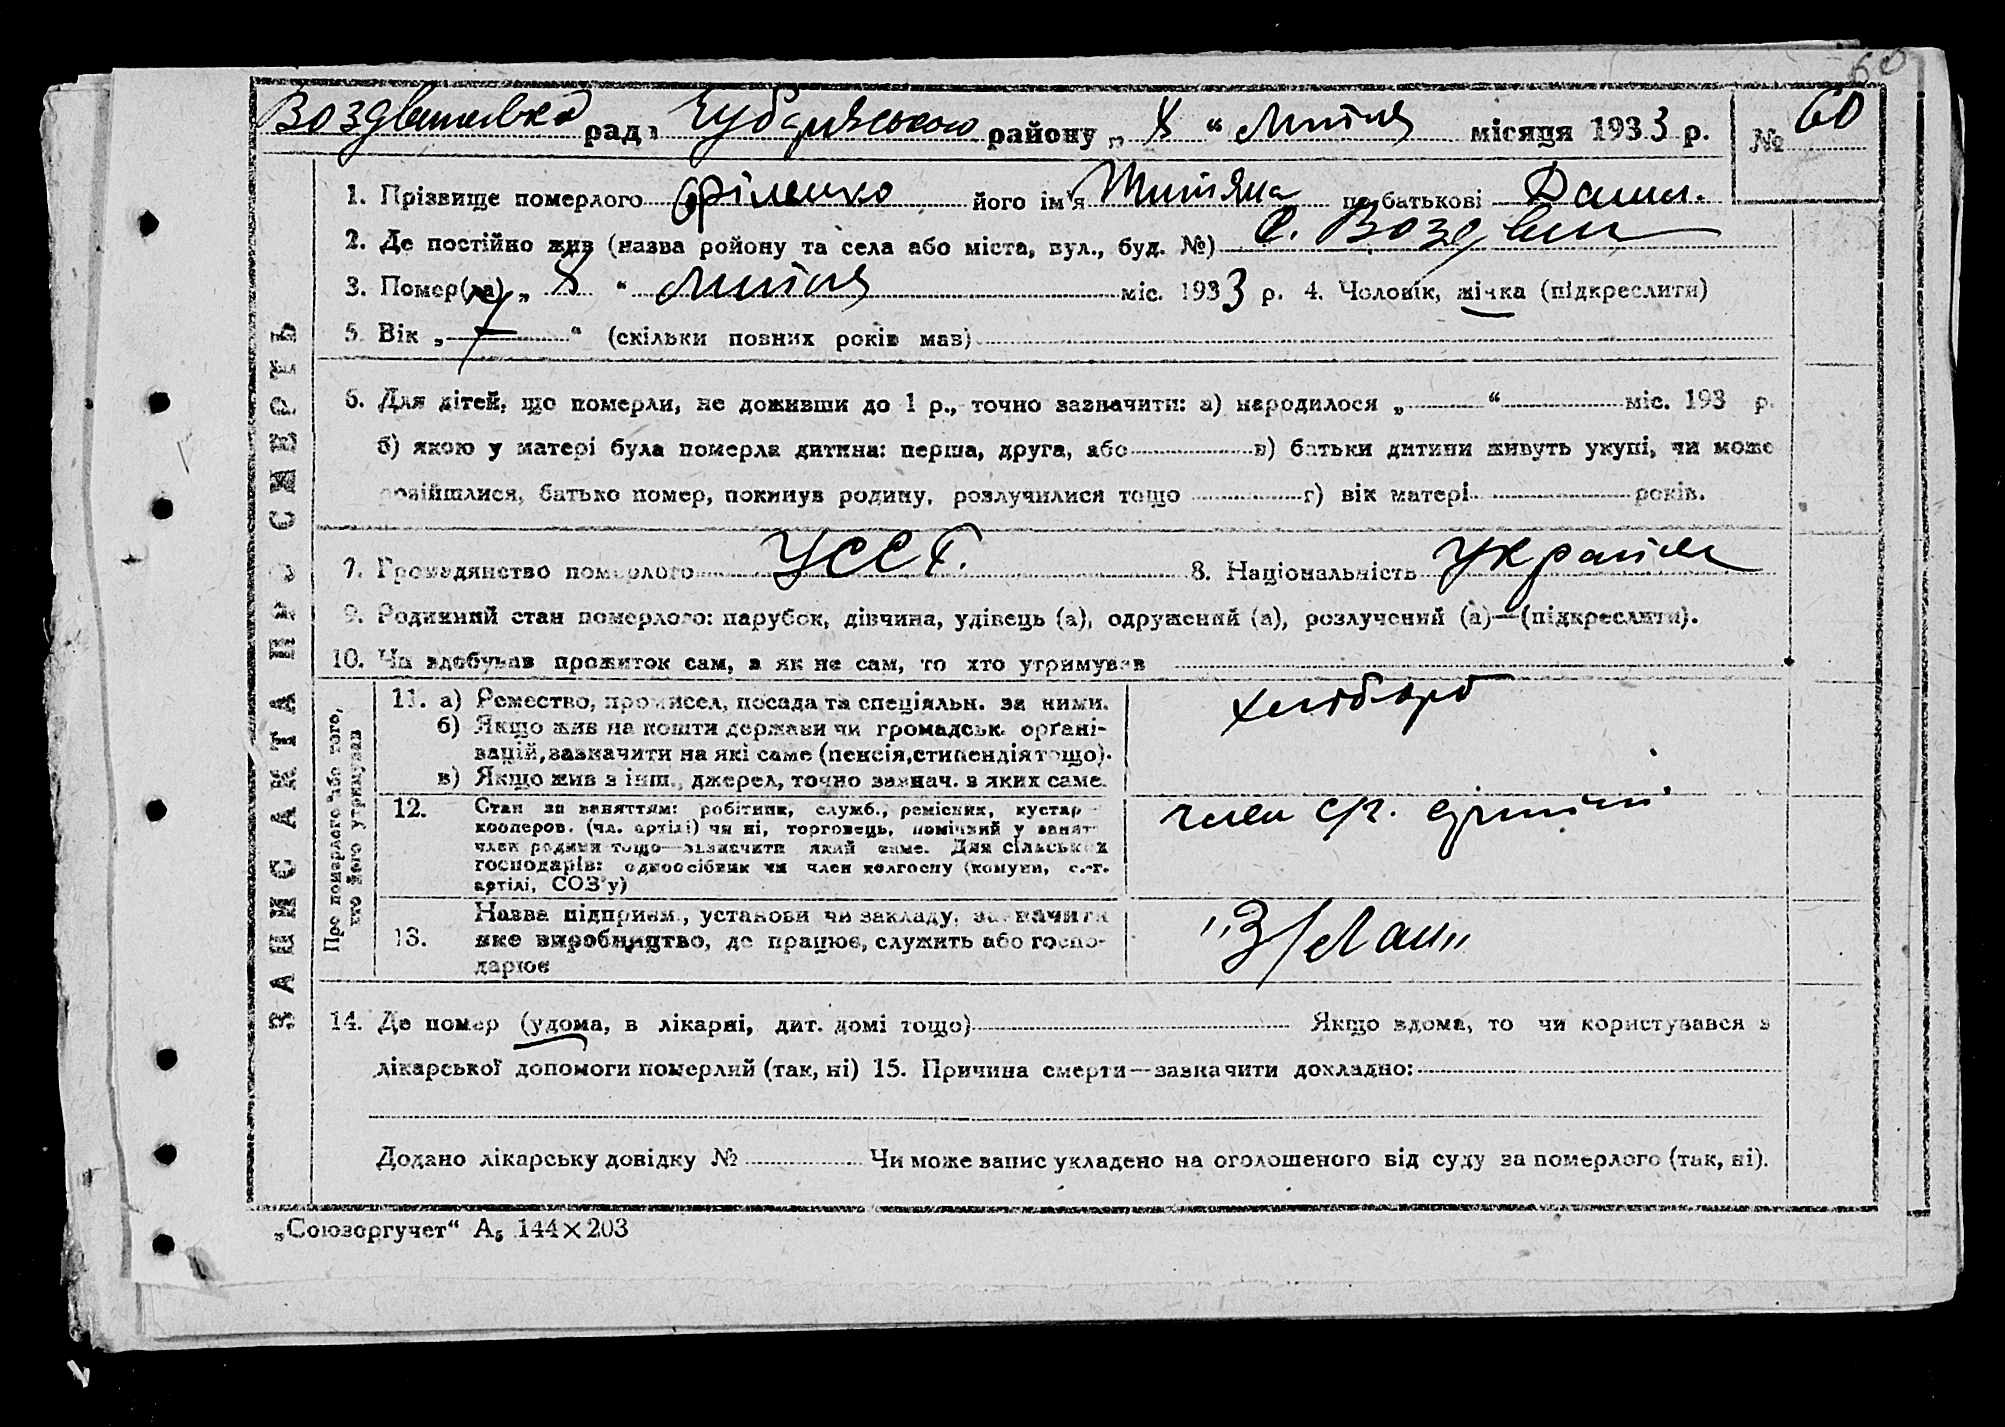 60
Воздвиженська рада Чубарівського району „ 8 “ Липня місяця 1933 р. № 60
ЗАПИС АКТА ПРО СМЕРТЬ
1. Прізвище померлого його ім'я Титяна по батькові Данил.
2. Де постійно жив (назва ройону та села або міста, вул., буд. №) С. Воздвиж
3. Помер(ла) „ 8 “ Липня міс. 1933 р. 4. Чоловік, жінка (підкреслити)
5. Вік „ 7 “ (скільки повних років мав)
6. Для дітей, що померли, не доживши до 1 р., точно зазначити: а) народилося „ “ міс. 193 р.
б) якою у матері була померла дитина: перша, друга, або в) батьки дитини живуть укупі, чи може
розійшлися, батько помер, покинув родину, розлучилися тощо г) вік матері років.
7. Громадянство померлого УССР. 8. Національність Україн
9. Родинний стан померлого: парубок, дівчина, удівець (а), одружений (а), розлучений (а)—(підкреслити).
10. Чи здобував прожиток сам, а як не сам, то хто утримував
Про померлого або того, хто його утримував
11. а) Ремество, промисел, посада та спеціяльн. за ними. хлібороб
б) Якщо жив на кошти держави чи громадськ. орґані-
зацій, зазначити на які саме (пенсія, стипендія тощо).
в) Якщо жив з інш., джерел, точно зазнач. з яких саме.
12. Стан за заняттям: робітник, служб., ремісник, кустар член с/г. артілі
кооперов. (чл. артілі) чи ні, торговець, помічний у занят-
член родини тощо—зазначити який саме. Для сільських
господарів: одноосібник чи член колгоспу (комуни, с.-г.
артілі, СОЗ'у)
13. Назва підприєм., установи чи закладу, зазначити
яке виробництво, де працює, служить або госпо-
дарює
14. Де помер (удома, в лікарні, дит. домі тощо) Якщо вдома, то чи користувався з
лікарської допомоги померлий (так, ні) 15. Причина смерти—зазначити докладно:
Додано лікарську довідку № Чи може запис укладено на оголошеного від суду за померлого (так, ні).
„Союзоргучет“ А5 144×203